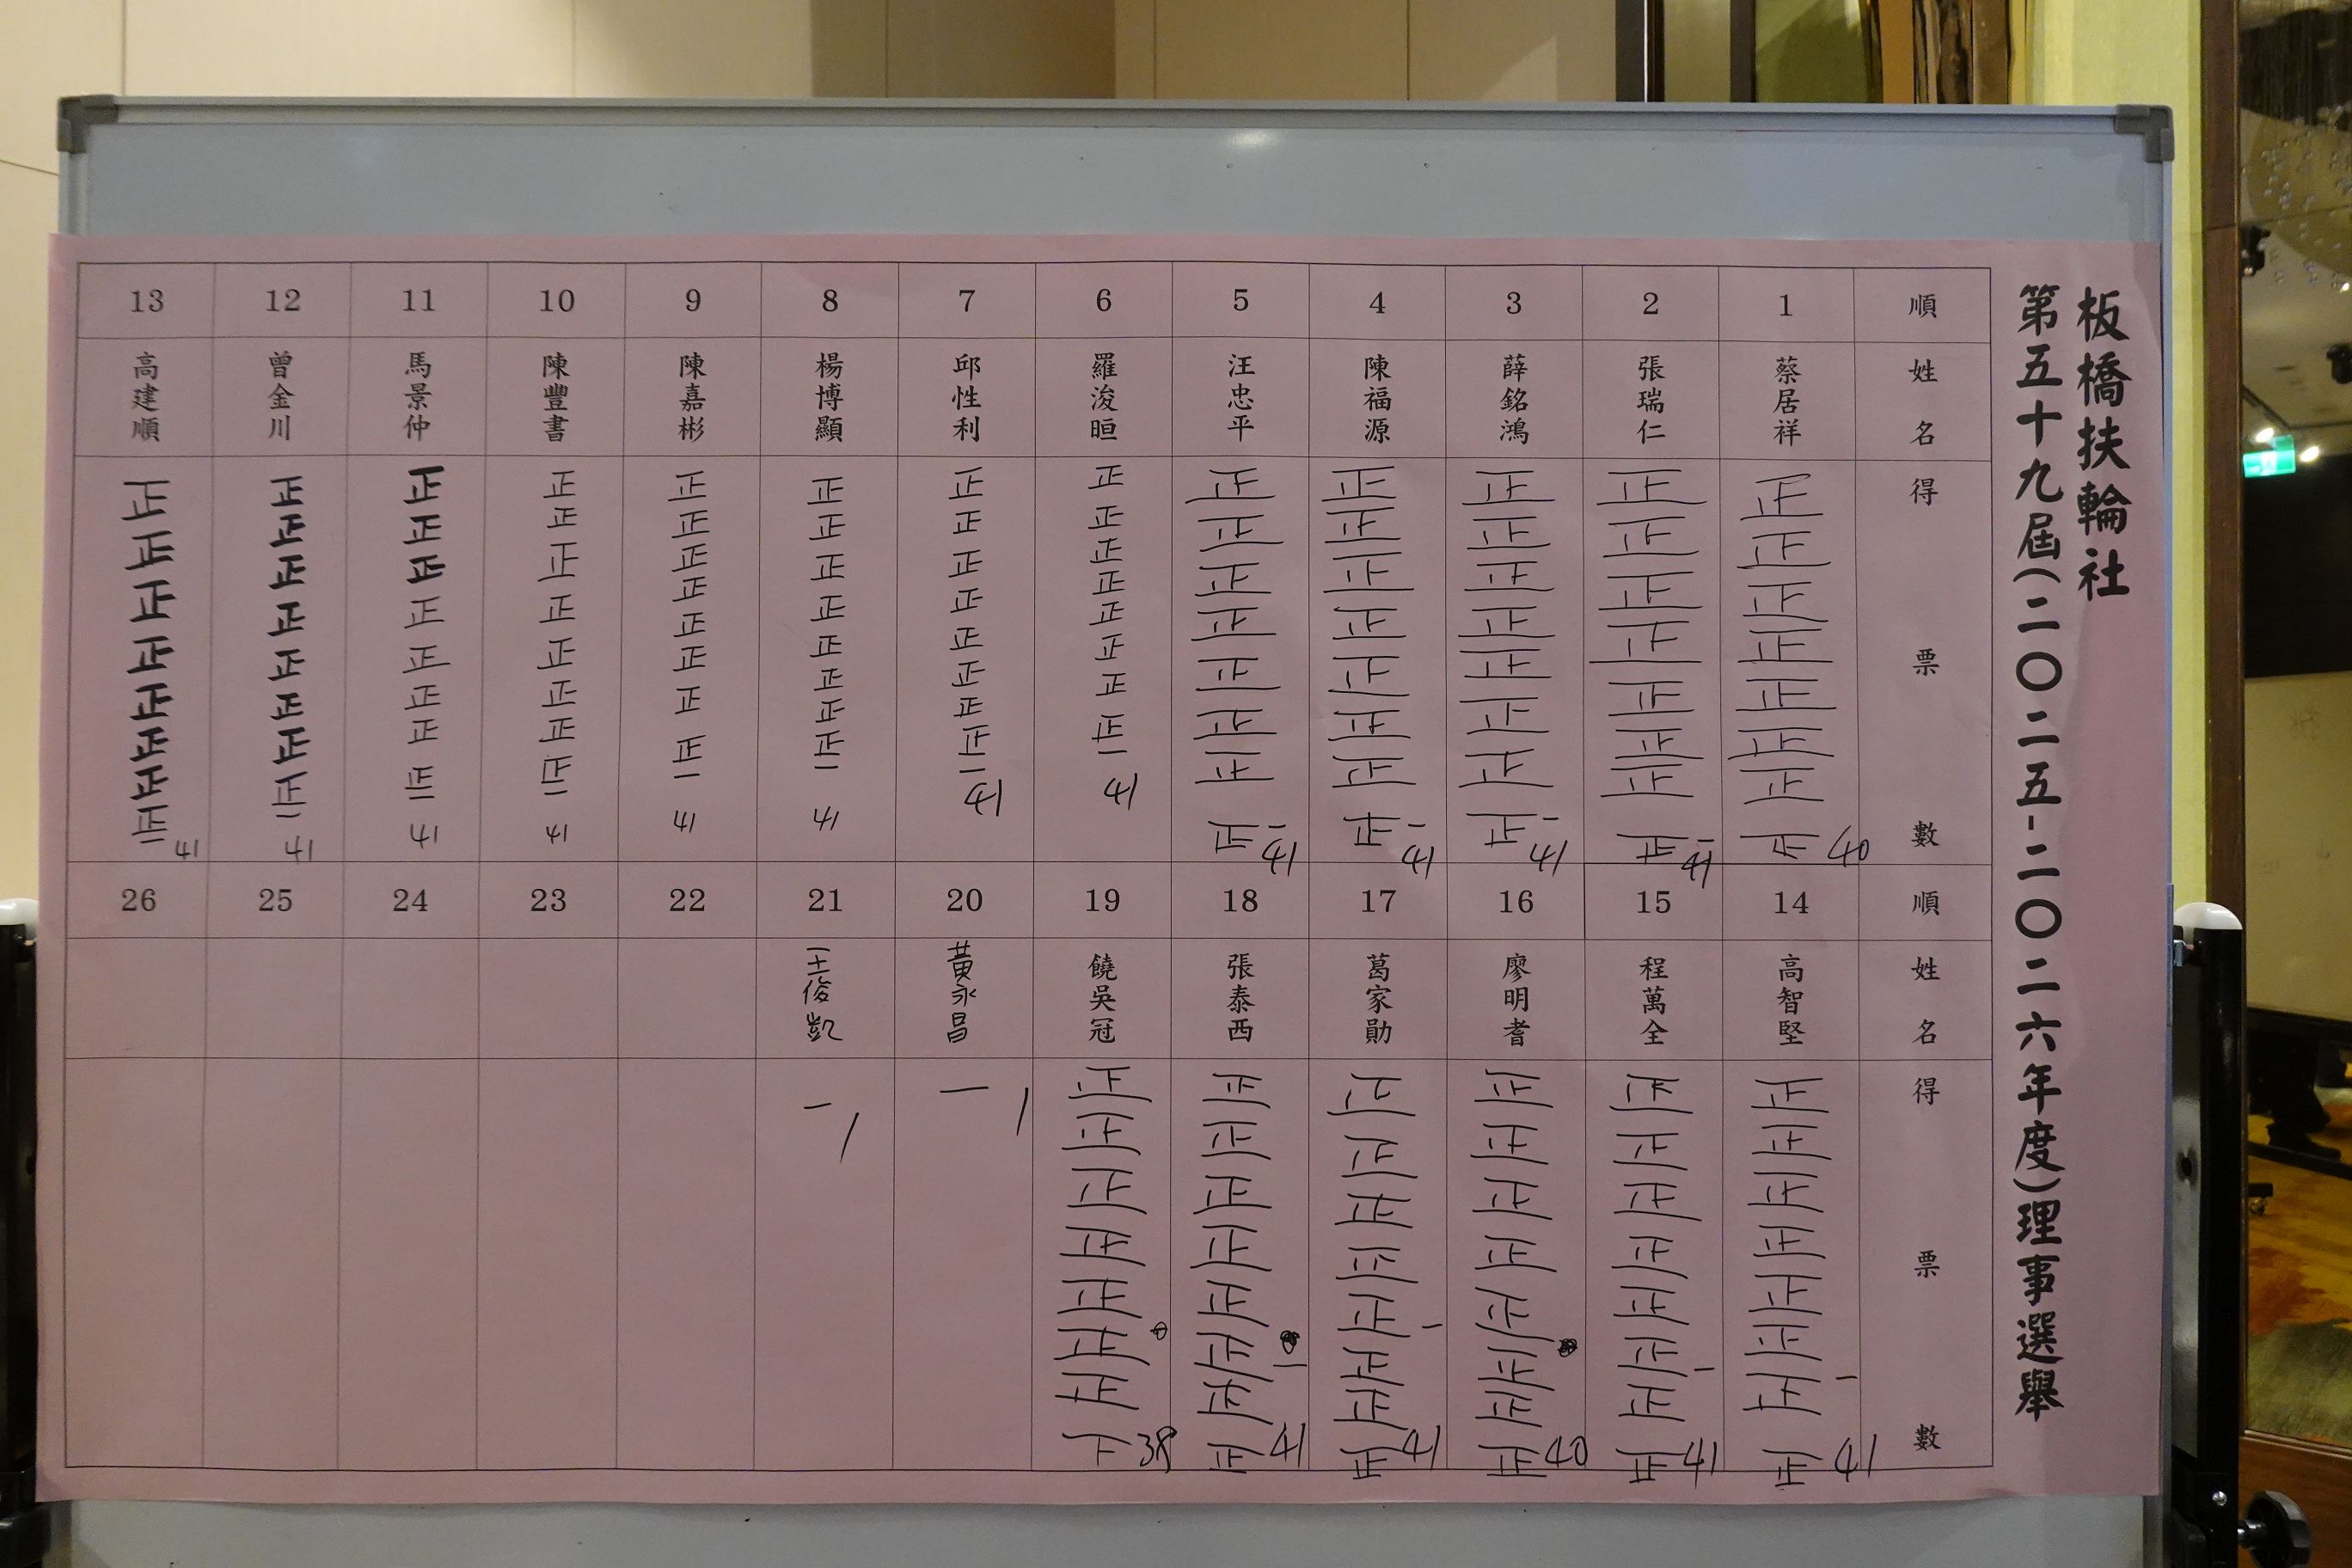 板橋扶輪社
第五十九屆(二〇二五-二〇二六年度)理事選舉
順 1 2 3 4 5 6 7 8 9 10 11 12 13
姓名 蔡居祥 張瑞仁 薛銘鴻 陳福源 汪忠平 羅浚晅 邱性利 楊博顯 陳嘉彬 陳豐書 馬景仲 曾金川 高建順
得票數
正正正正正正正正 40
正正正正正正正正一 41
正正正正正正正正一 41
正正正正正正正正一 41
正正正正正正正正一 41
正正正正正正正正一 41
正正正正正正正正一 41
正正正正正正正正一 41
正正正正正正正正一 41
正正正正正正正正一 41
正正正正正正正正一 41
正正正正正正正正一 41
正正正正正正正正一 41
順 14 15 16 17 18 19 20 21 22 23 24 25 26
姓名 高智堅 程萬全 廖明耆 葛家勛 張泰西 饒吳冠 黃永昌 王俊凱
得票數
正正正正正正正正一 41
正正正正正正正正一 41
正正正正正正正正 40
正正正正正正正正一 41
正正正正正正正正一 41
正正正正正正正下 38
一 1
一 1